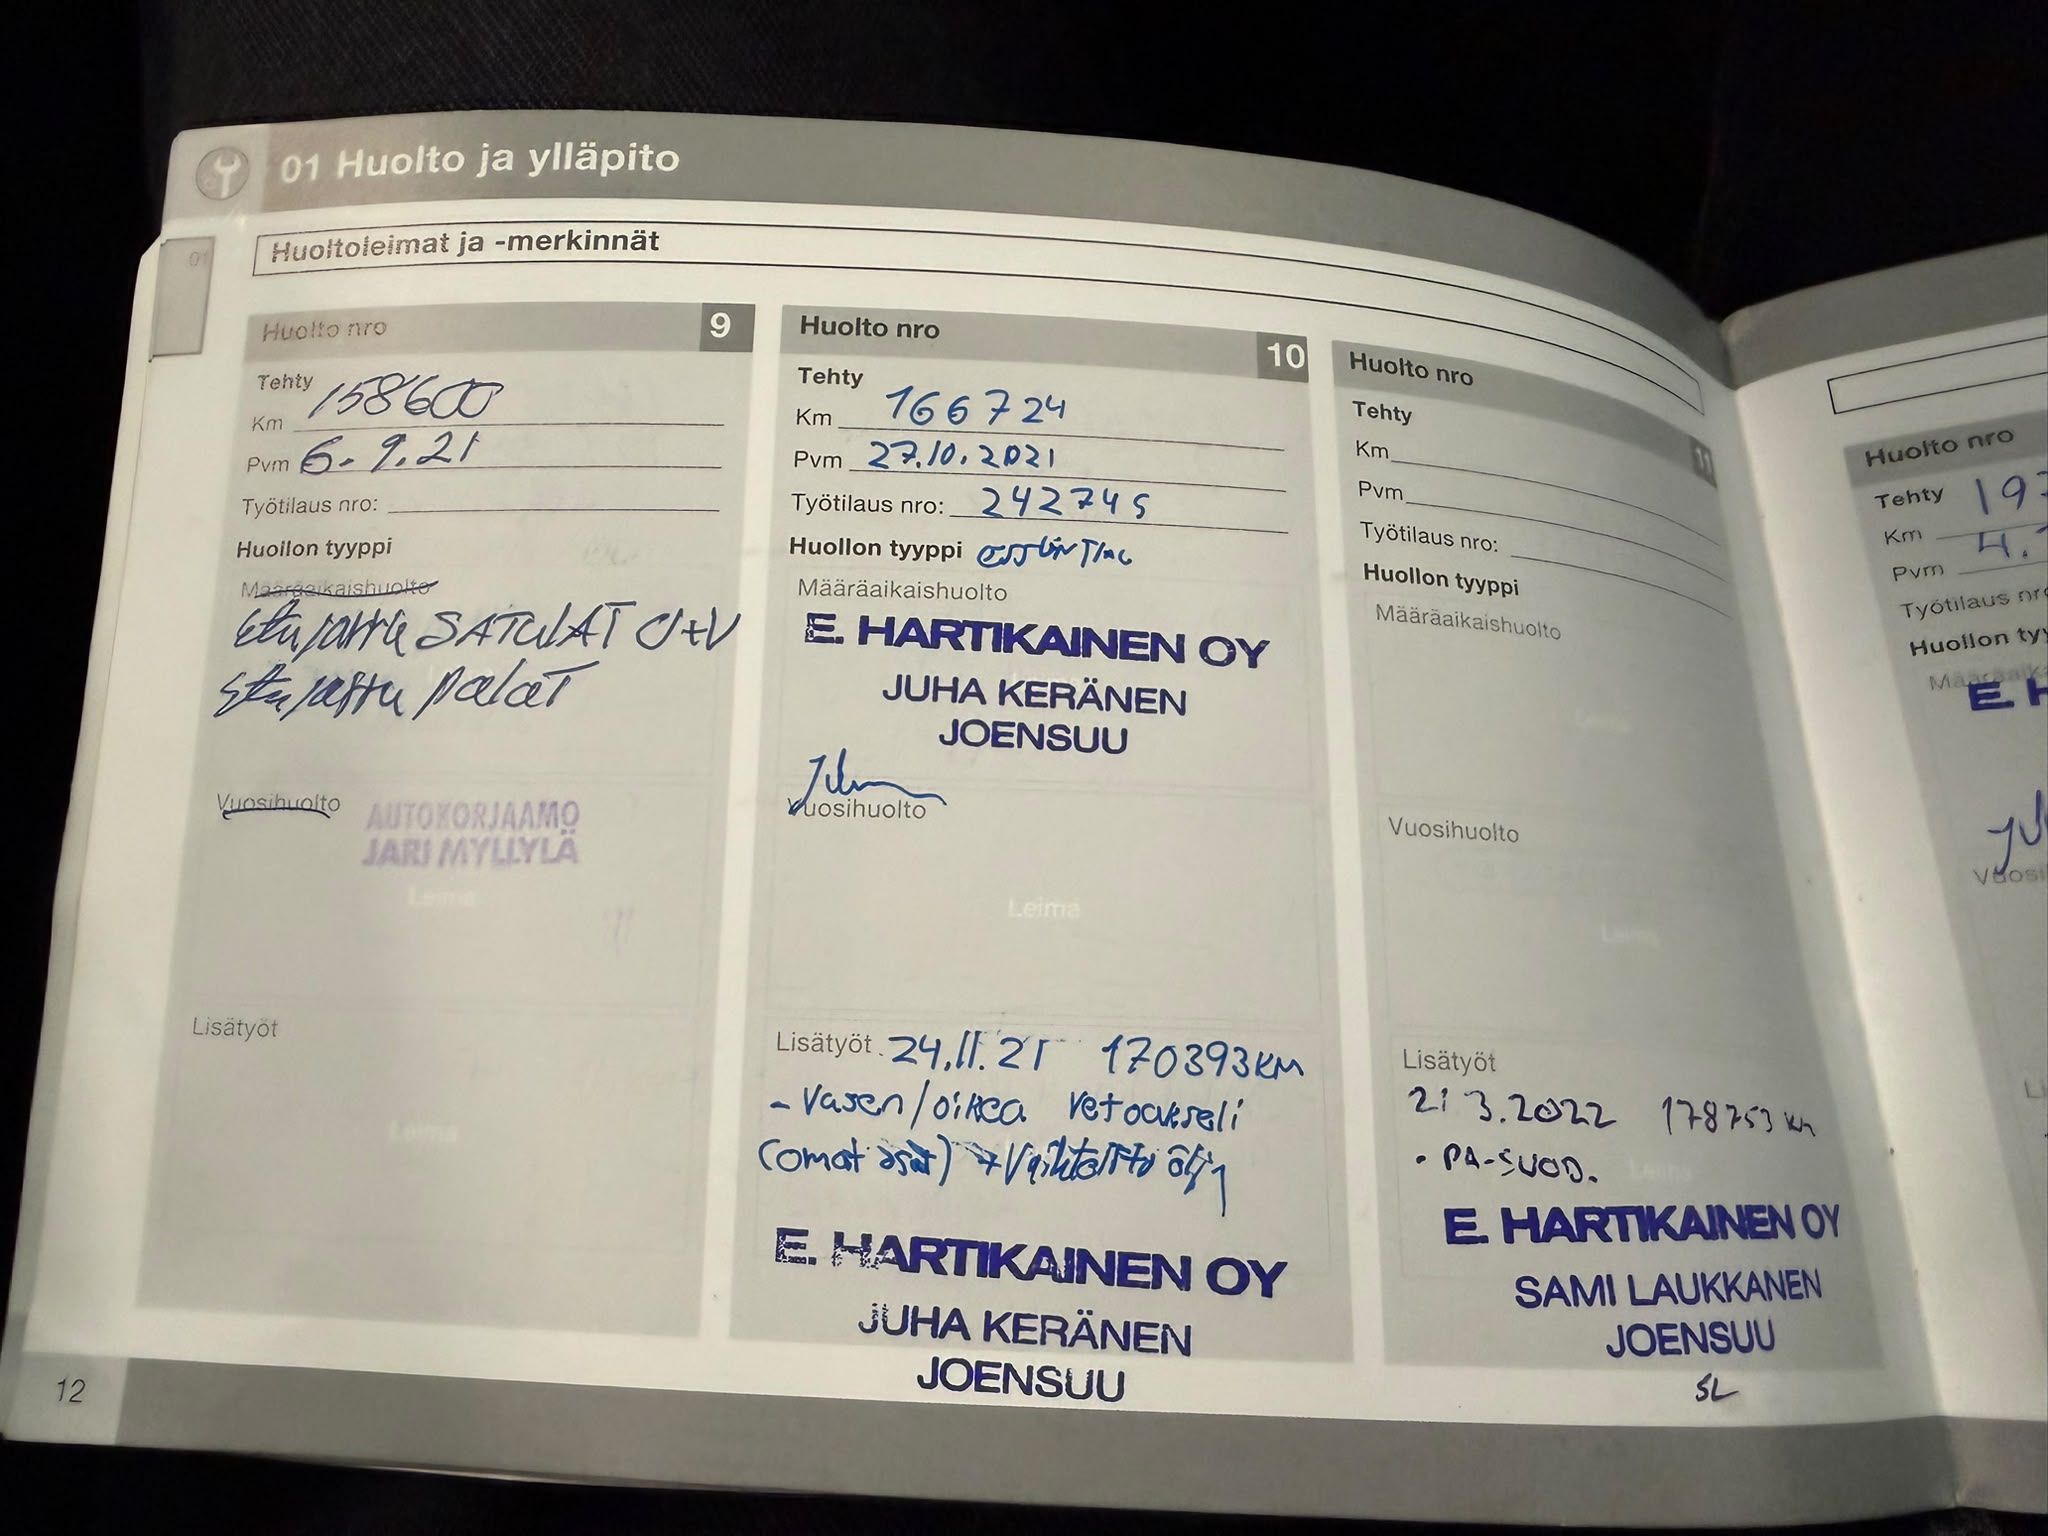 01 Huolto ja ylläpito
01
Huoltoleimat ja -merkinnät
Huolto nro 9
Tehty
Km 158600
Pvm 6.9.21
Työtilaus nro:
Huollon tyyppi
Määräaikaishuolto
Etujarru SATULAT O+V
Etujarru palat
Vuosihuolto
AUTOKORJAAMO
JARI MYLLYLÄ
Leima
Lisätyöt
Leima
12
Huolto nro 10
Tehty
Km 166724
Pvm 27.10.2021
Työtilaus nro: 242745
Huollon tyyppi
Määräaikaishuolto
E. HARTIKAINEN OY
JUHA KERÄNEN
JOENSUU
Vuosihuolto
Leima
Lisätyöt 24.11.21 170393KM
- Vasen/oikea vetoakseli
(omat osat) + Vaihteisto öljy
E. HARTIKAINEN OY
JUHA KERÄNEN
JOENSUU
Huolto nro 11
Tehty
Km
Pvm
Työtilaus nro:
Huollon tyyppi
Määräaikaishuolto
Leima
Vuosihuolto
Leima
Lisätyöt
21 3.2022 178753 km
• PA-SUOD.
Leima
E. HARTIKAINEN OY
SAMI LAUKKANEN
JOENSUU
SL
Huolto nro
Tehty 197
Km
Pvm 4.
Työtilaus nro
Huollon
E.